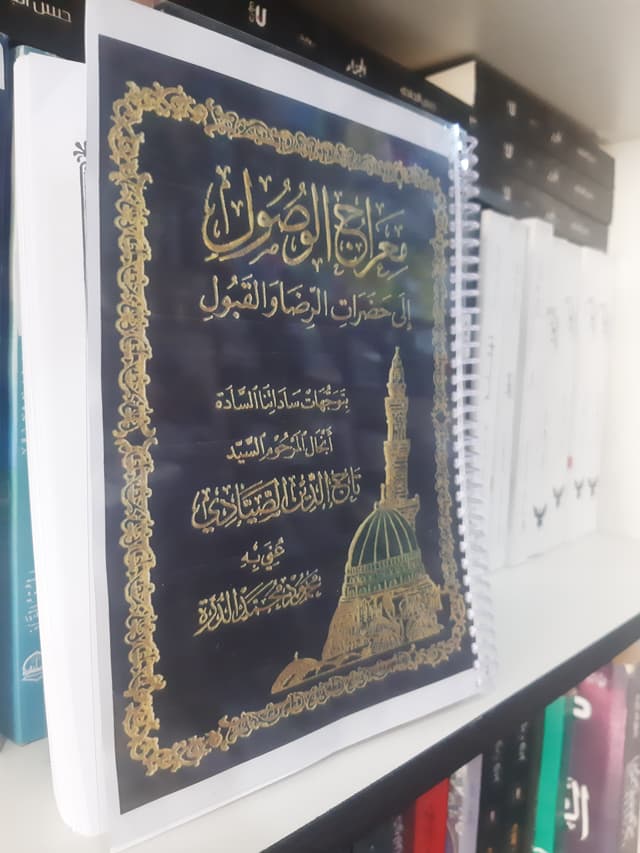 مِعْرَاجُ الوُصُولِ
إِلَى حَضَرَاتِ الرِّضَا وَالقَبُولِ
بِتَوَجُّهَاتِ سَادَاتِنَا السَّادَة
أَنْجَال المَرْحُوم السَّيِّد
تَاج الدِّين الصَّيَّادِي
عُنِيَ بِهِ
محمود محمد الدرة